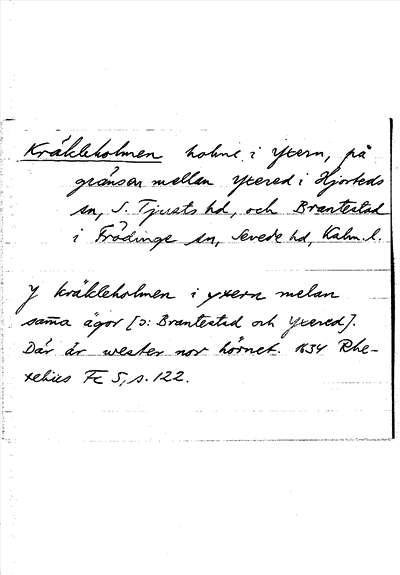 Kräkleholmen holme i Yxern, på
gränsen mellan Yxered i Hjorteds
sn, S. Tjusts hd, och Brantestad
i Frödinge sn, Sevede hd, Kalm. l.
J kräkleholmen i yxern melan
sam̅a ägor [ɔ: Brantestad och Yxered].
Där är wester nor hörnet. 1634 Rhe-
zelius Fc 5, s. 122.